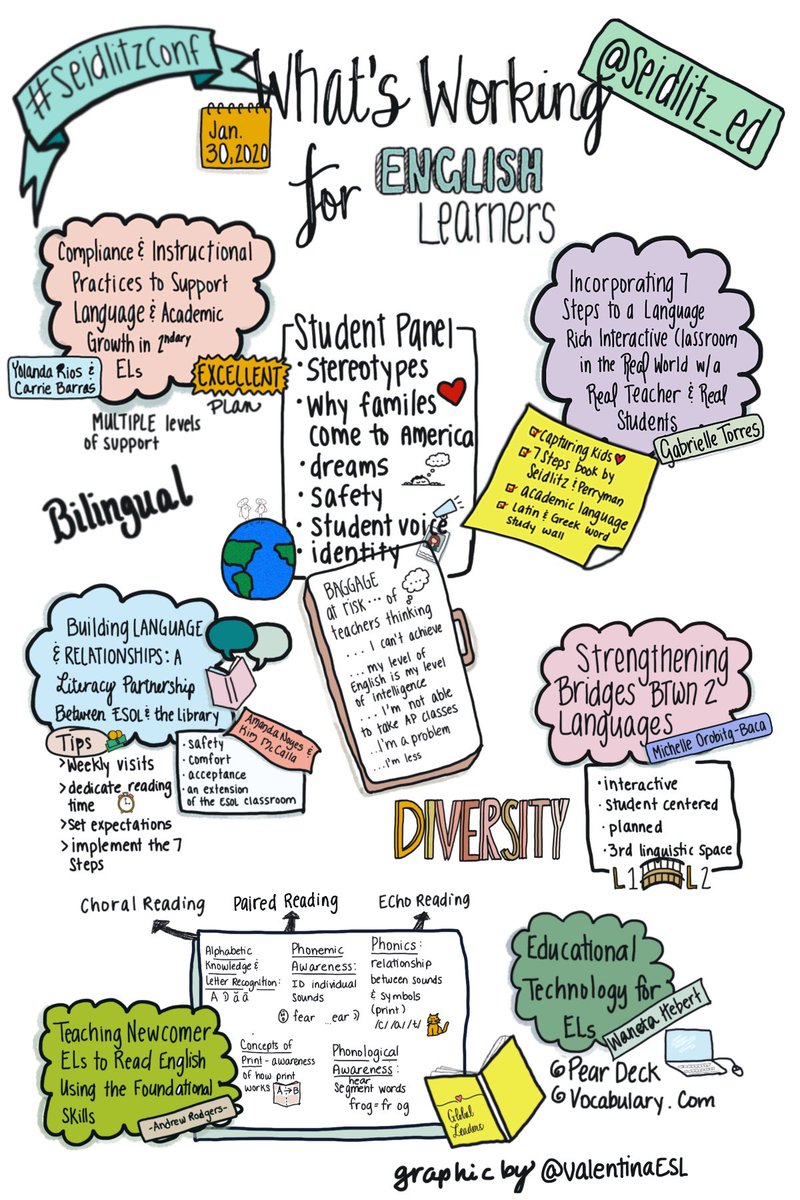 #SeidlitzConf
Jan.
30,2020
What's Working
for ENGLISH
Learners
@Seidlitz_ed
Compliance & Instructional
Practices to Support
Language & Academic
Growth in 2ndary
ELs
Yolanda Rios &
Carrie Barras
EXCELLENT
Plan
MULTIPLE levels
of support
Bilingual
Student Panel
• Stereotypes
• Why familes
Come to America
• dreams
• Safety
• Student voice
• identity
Incorporating 7
Steps to a Language
Rich Interactive Classroom
in the Real World w/a
Real Teacher & Real
Students
Gabrielle Torres
Capturing Kids
7 Steps book by
Seidlitz & Perryman
academic language
Latin & Greek word
study wall
BAGGAGE
at risk... of
teachers thinking
... I can't achieve
...my level of
English is my level
of intelligence
...I'm not able
to take AP classes
...I'm a problem
...I'm less
Building LANGUAGE
& RELATIONSHIPS: A
Literacy Partnership
Between ESOL & the library
Amanda Noyes &
Kim McCaila
Tips
> Weekly visits
> dedicate reading
time
> Set expectations
> implement the 7
Steps
• safety
• comfort
• acceptance
• an extension
of the ESOL classroom
Strengthening
Bridges BTWN 2
Languages
Michelle Orobitg-Baca
• interactive
• student centered
• planned
• 3rd linguistic space
L1 L2
DIVERSITY
Choral Reading
Paired Reading
Echo Reading
Alphabetic
Knowledge &
Letter Recognition:
Phonemic
Awareness:
ID individual
Sounds
fear ...ear
Phonics:
relationship
between sounds
& symbols
(print)
/c//a//t/
Concepts of
Print - awareness
of how print
works A→B
Phonological
Awareness:
hear
Segment words
frog = fr og
Teaching Newcomer
ELs to Read English
Using the Foundational
Skills
-Andrew Rodgers-
Global
Leaders
Educational
Technology for
ELs
Waneta Hebert
Pear Deck
Vocabulary.Com
graphic by @valentinaESL